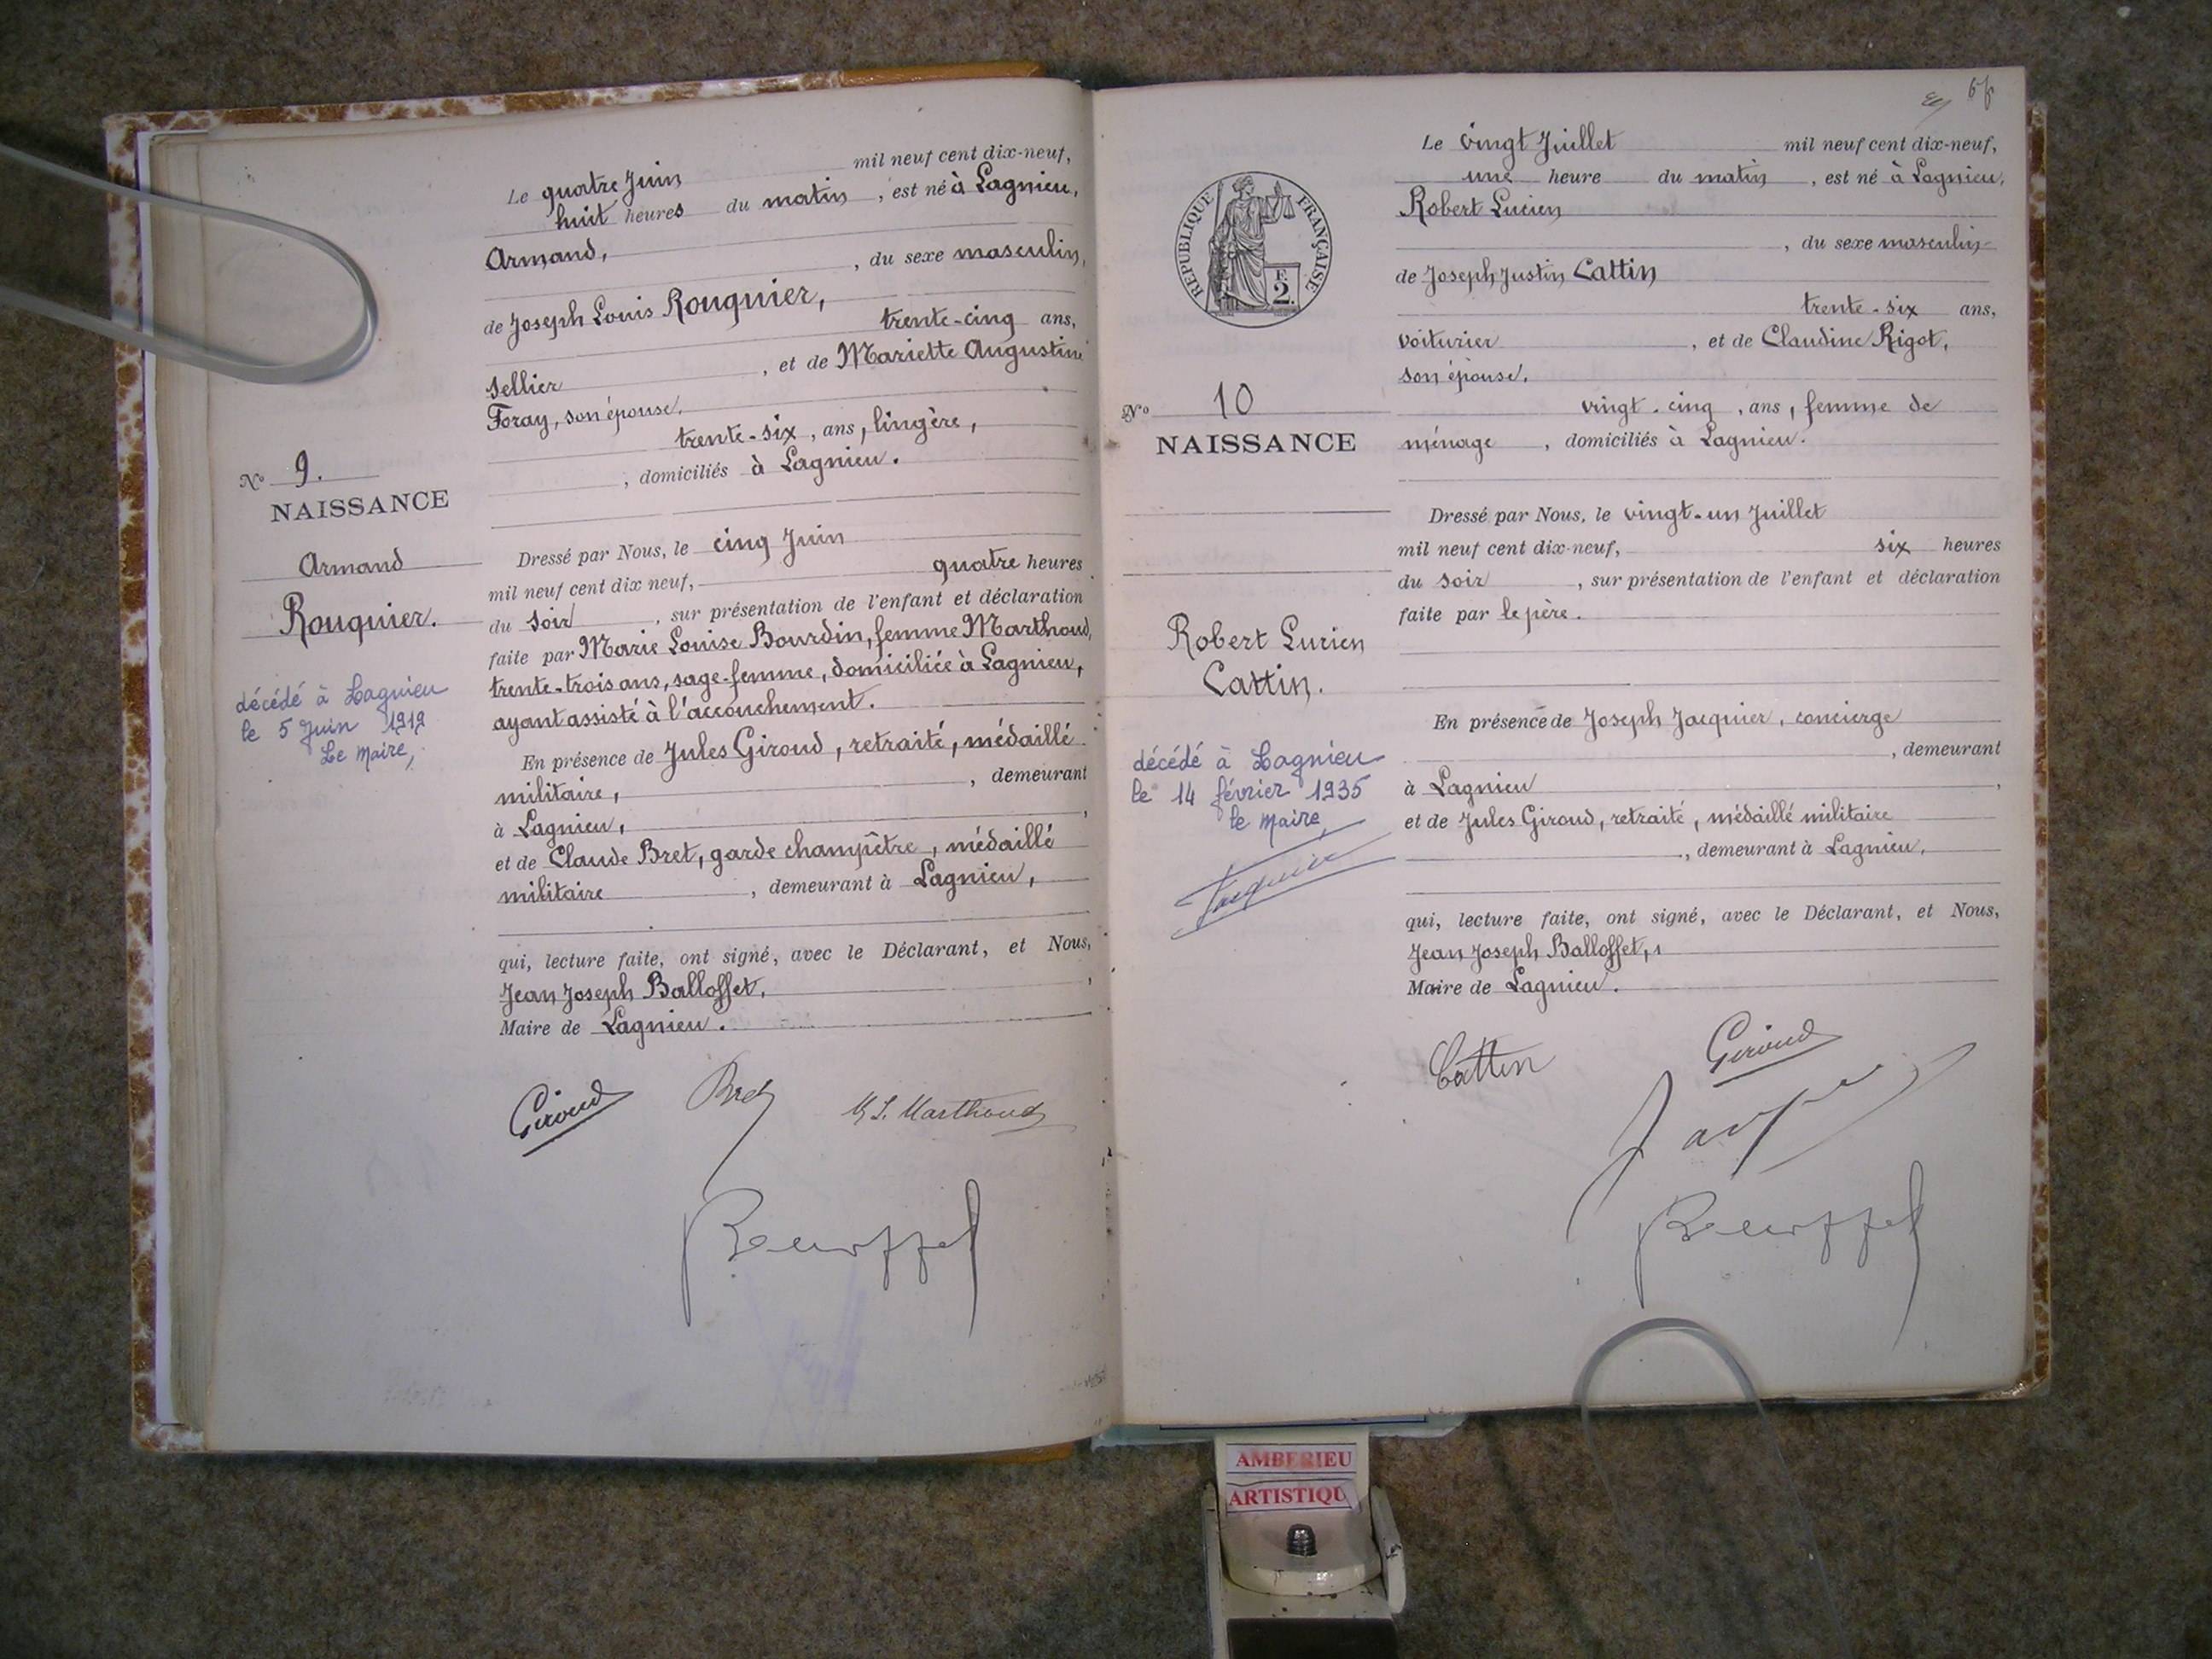 Le quatre Juin mil neuf cent dix-neuf,
huit heures du matin, est né à Lagnieu,
Armand,
, du sexe masculin,
de Joseph Louis Rouquier,
trente-cinq ans,
sellier, et de Mariette Augustine
Foray, son épouse,
trente-six, ans, lingère,
, domiciliés à Lagnieu.
Nº 9.
NAISSANCE
Armand
Rouquier.
décédé à Lagnieu
le 5 Juin 1919
Le Maire,
Dressé par Nous, le cinq Juin
mil neuf cent dix neuf, quatre heures
du soir, sur présentation de l'enfant et déclaration
faite par Marie Louise Bourdin, femme Marthoud,
trente-trois ans, sage-femme, domiciliée à Lagnieu,
ayant assisté à l'accouchement.
En présence de Jules Giroud, retraité, médaillé
militaire, , demeurant
à Lagnieu,
et de Claude Bret, garde champêtre, médaillé
militaire, demeurant à Lagnieu,
qui, lecture faite, ont signé, avec le Déclarant, et Nous,
Jean Joseph Balloffet,
Maire de Lagnieu.
Giroud Bret M L Marthoud
Le vingt Juillet mil neuf cent dix-neuf,
une heure du matin, est né à Lagnieu,
Robert Lucien
, du sexe masculin
de Joseph Justin Cattin
trente-six ans,
voiturier, et de Claudine Rigot,
son épouse,
vingt-cinq, ans, femme de
ménage, domiciliés à Lagnieu.
REPUBLIQUE FRANÇAISE
F.
2.
Nº 10
NAISSANCE
Robert Lucien
Cattin.
décédé à Lagnieu
le 14 février 1935
le Maire,
Jacquier
Dressé par Nous, le vingt-un Juillet
mil neuf cent dix-neuf, six heures
du soir, sur présentation de l'enfant et déclaration
faite par le père.
En présence de Joseph Jacquier, concierge
, demeurant
à Lagnieu,
et de Jules Giroud, retraité, médaillé militaire
, demeurant à Lagnieu,
qui, lecture faite, ont signé, avec le Déclarant, et Nous,
Jean Joseph Balloffet,
Maire de Lagnieu.
Cattin Giroud
AMBERIEU
ARTISTIQU